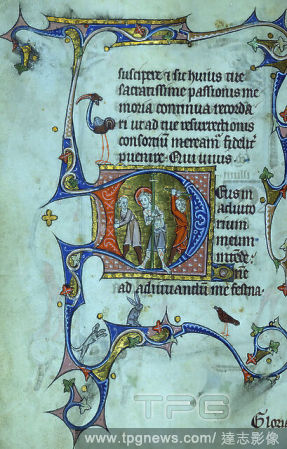 suscipere et sic huius tue
sacratissime passionis me
moria continua recorda
ri ut ad tue resurrectionis
consortium merear
pervenire Qui vivis
Deus in
adiuto
rium
meum
intende
ad adiuvandum me festina
Gloria
TPG
www.tpgnews.com/ 達志影像